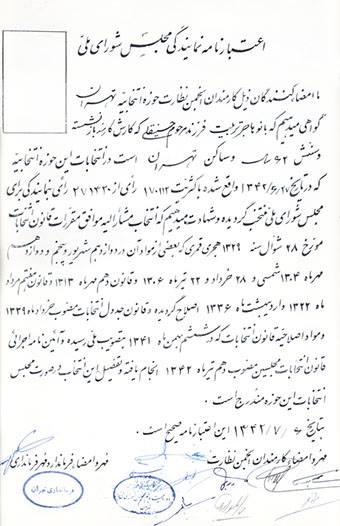 اعتبارنامه نمایندگی مجلس شورای ملی
ما امضاکنندگان ذیل کارمندان انجمن نظارت حوزه انتخابیه تهران
گواهی میدهیم که بانو هاجر تربیت فرزند مرحوم که کارش کارمند بازنشسته
و سنش ۶۲ سال و ساکن تهران است در انتخابات این حوزه انتخابیه
که در تاریخ ۱۳۴۲/۶/۲۶ واقع شده با کثرت ۱۷۰۱۱۲ رأی از ۲۷۱۴۲۰ رأی نمایندگی برای
مجلس شورای ملی منتخب گردیده و شهادت میدهیم که انتخاب مشارالیه موافق مقررات قانون انتخابات
مورخ ۲۸ شوال سنه ۱۳۲۹ هجری قمری که بعضی از مواد آن در دوازدهم شهریور و پنجم و دوازدهم
مهرماه ۱۳۰۴ شمسی و ۲۸ خرداد و ۲۲ تیرماه ۱۳۰۶ و قانون دهم مهرماه ۱۳۱۳ و قانون هفتم مرداد
ماه ۱۳۲۲ و اردیبهشت ماه ۱۳۳۶ اصلاح گردیده و قانون جدول انتخابات مصوب خرداد ماه ۱۳۳۹
و مواد اصلاحیه قانون انتخابات که در ششم بهمن ماه ۱۳۴۱ بتصویب ملی رسیده و آئین نامه اجرائی
قانون انتخابات مجلسین مصوب دهم تیرماه ۱۳۴۲ انجام یافته و تفصیل این انتخاب در صورت مجلس
انتخابات این حوزه مندرج است .
بتاریخ ۴ / ۷ / ۱۳۴۲ این اعتبارنامه صحیح است .
مهر و امضاء کارمندان انجمن نظارت مهر و امضاء فرماندار و مهر فرمانداری
فرمانداری تهران